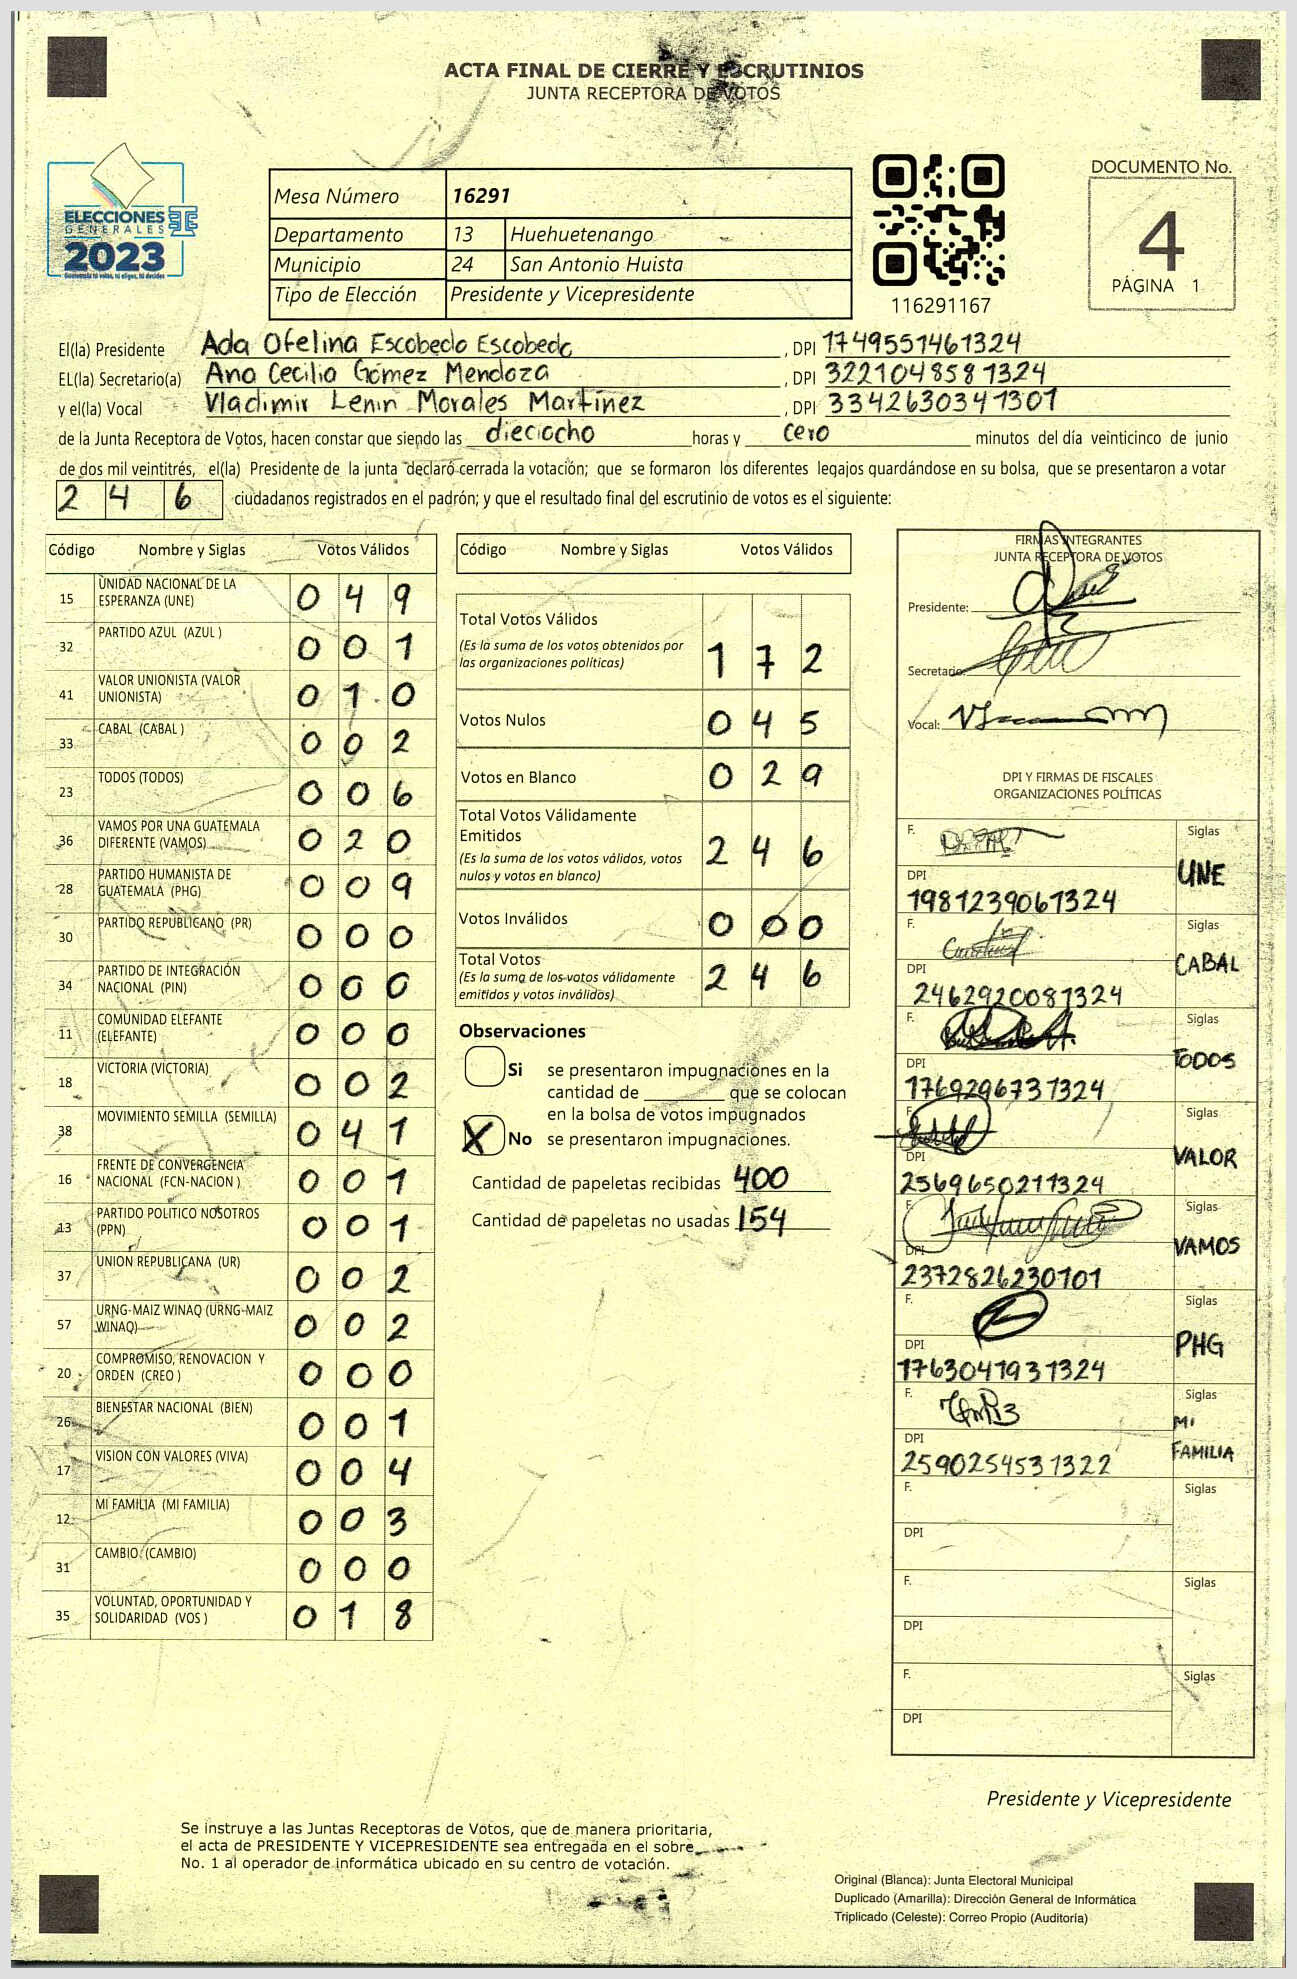 ACTA FINAL DE CIERRE Y ESCRUTINIOS
JUNTA RECEPTORA DE VOTOS
ELECCIONES
GENERALES
2023
Guatemala tú votas, tú eliges, tú decides
Mesa Número 16291
Departamento 13 Huehuetenango
Municipio 24 San Antonio Huista
Tipo de Elección Presidente y Vicepresidente
116291167
DOCUMENTO No.
4
PÁGINA 1
El(la) Presidente Ada Ofelina Escobedo Escobedo , DPI 1749551461324
EL(la) Secretario(a) Ana Cecilia Gómez Mendoza , DPI 3221048581324
y el(la) Vocal Vladimir Lenin Morales Martínez , DPI 3342630341301
de la Junta Receptora de Votos, hacen constar que siendo las dieciocho horas y cero minutos del día veinticinco de junio
de dos mil veintitrés, el(la) Presidente de la junta declaró cerrada la votación; que se formaron los diferentes legajos guardándose en su bolsa, que se presentaron a votar
2 4 6 ciudadanos registrados en el padrón; y que el resultado final del escrutinio de votos es el siguiente:
Código Nombre y Siglas Votos Válidos
15 UNIDAD NACIONAL DE LA ESPERANZA (UNE) 0 4 9
32 PARTIDO AZUL (AZUL ) 0 0 1
41 VALOR UNIONISTA (VALOR UNIONISTA) 0 1 0
33 CABAL (CABAL ) 0 0 2
23 TODOS (TODOS) 0 0 6
36 VAMOS POR UNA GUATEMALA DIFERENTE (VAMOS) 0 2 0
28 PARTIDO HUMANISTA DE GUATEMALA (PHG) 0 0 9
30 PARTIDO REPUBLICANO (PR) 0 0 0
34 PARTIDO DE INTEGRACIÓN NACIONAL (PIN) 0 0 0
11 COMUNIDAD ELEFANTE (ELEFANTE) 0 0 0
18 VICTORIA (VICTORIA) 0 0 2
38 MOVIMIENTO SEMILLA (SEMILLA) 0 4 1
16 FRENTE DE CONVERGENCIA NACIONAL (FCN-NACION ) 0 0 1
13 PARTIDO POLITICO NOSOTROS (PPN) 0 0 1
37 UNION REPUBLICANA (UR) 0 0 2
57 URNG-MAIZ WINAQ (URNG-MAIZ WINAQ) 0 0 2
20 COMPROMISO, RENOVACION Y ORDEN (CREO ) 0 0 0
26 BIENESTAR NACIONAL (BIEN) 0 0 1
17 VISION CON VALORES (VIVA) 0 0 4
12 MI FAMILIA (MI FAMILIA) 0 0 3
31 CAMBIO (CAMBIO) 0 0 0
35 VOLUNTAD, OPORTUNIDAD Y SOLIDARIDAD (VOS ) 0 1 8
Código Nombre y Siglas Votos Válidos
Total Votos Válidos
(Es la suma de los votos obtenidos por
las organizaciones políticas) 1 7 2
Votos Nulos 0 4 5
Votos en Blanco 0 2 9
Total Votos Válidamente
Emitidos
(Es la suma de los votos válidos, votos
nulos y votos en blanco) 2 4 6
Votos Inválidos 0 0 0
Total Votos
(Es la suma de los votos válidamente
emitidos y votos inválidos) 2 4 6
Observaciones
Si se presentaron impugnaciones en la
cantidad de ________ que se colocan
en la bolsa de votos impugnados
X No se presentaron impugnaciones.
Cantidad de papeletas recibidas 400
Cantidad de papeletas no usadas 154
FIRMAS INTEGRANTES
JUNTA RECEPTORA DE VOTOS
Presidente:
Secretario:
Vocal:
DPI Y FIRMAS DE FISCALES
ORGANIZACIONES POLÍTICAS
F. Siglas
UNE
DPI
1981239061324
F. Siglas
CABAL
DPI
2462920081324
F. Siglas
TODOS
DPI
1769296731324
F. Siglas
VALOR
DPI
2569650211324
F. Siglas
VAMOS
DPI
2372826230101
F. Siglas
PHG
DPI
1763041931324
F. Siglas
MI
FAMILIA
DPI
2590254531322
F. Siglas
DPI
F. Siglas
DPI
F. Siglas
DPI
Presidente y Vicepresidente
Se instruye a las Juntas Receptoras de Votos, que de manera prioritaria,
el acta de PRESIDENTE Y VICEPRESIDENTE sea entregada en el sobre
No. 1 al operador de informática ubicado en su centro de votación.
Original (Blanca): Junta Electoral Municipal
Duplicado (Amarilla): Dirección General de Informática
Triplicado (Celeste): Correo Propio (Auditoría)